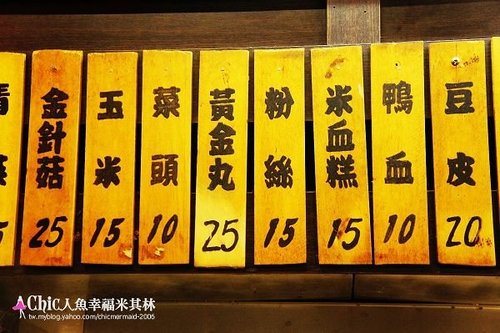 金針菇 25
玉米 15
菜頭 10
黃金丸 25
粉絲 15
米血糕 15
鴨血 10
豆皮 20
Chic人魚幸福米其林
tw.myblog.yahoo.com/chicmermaid-2006